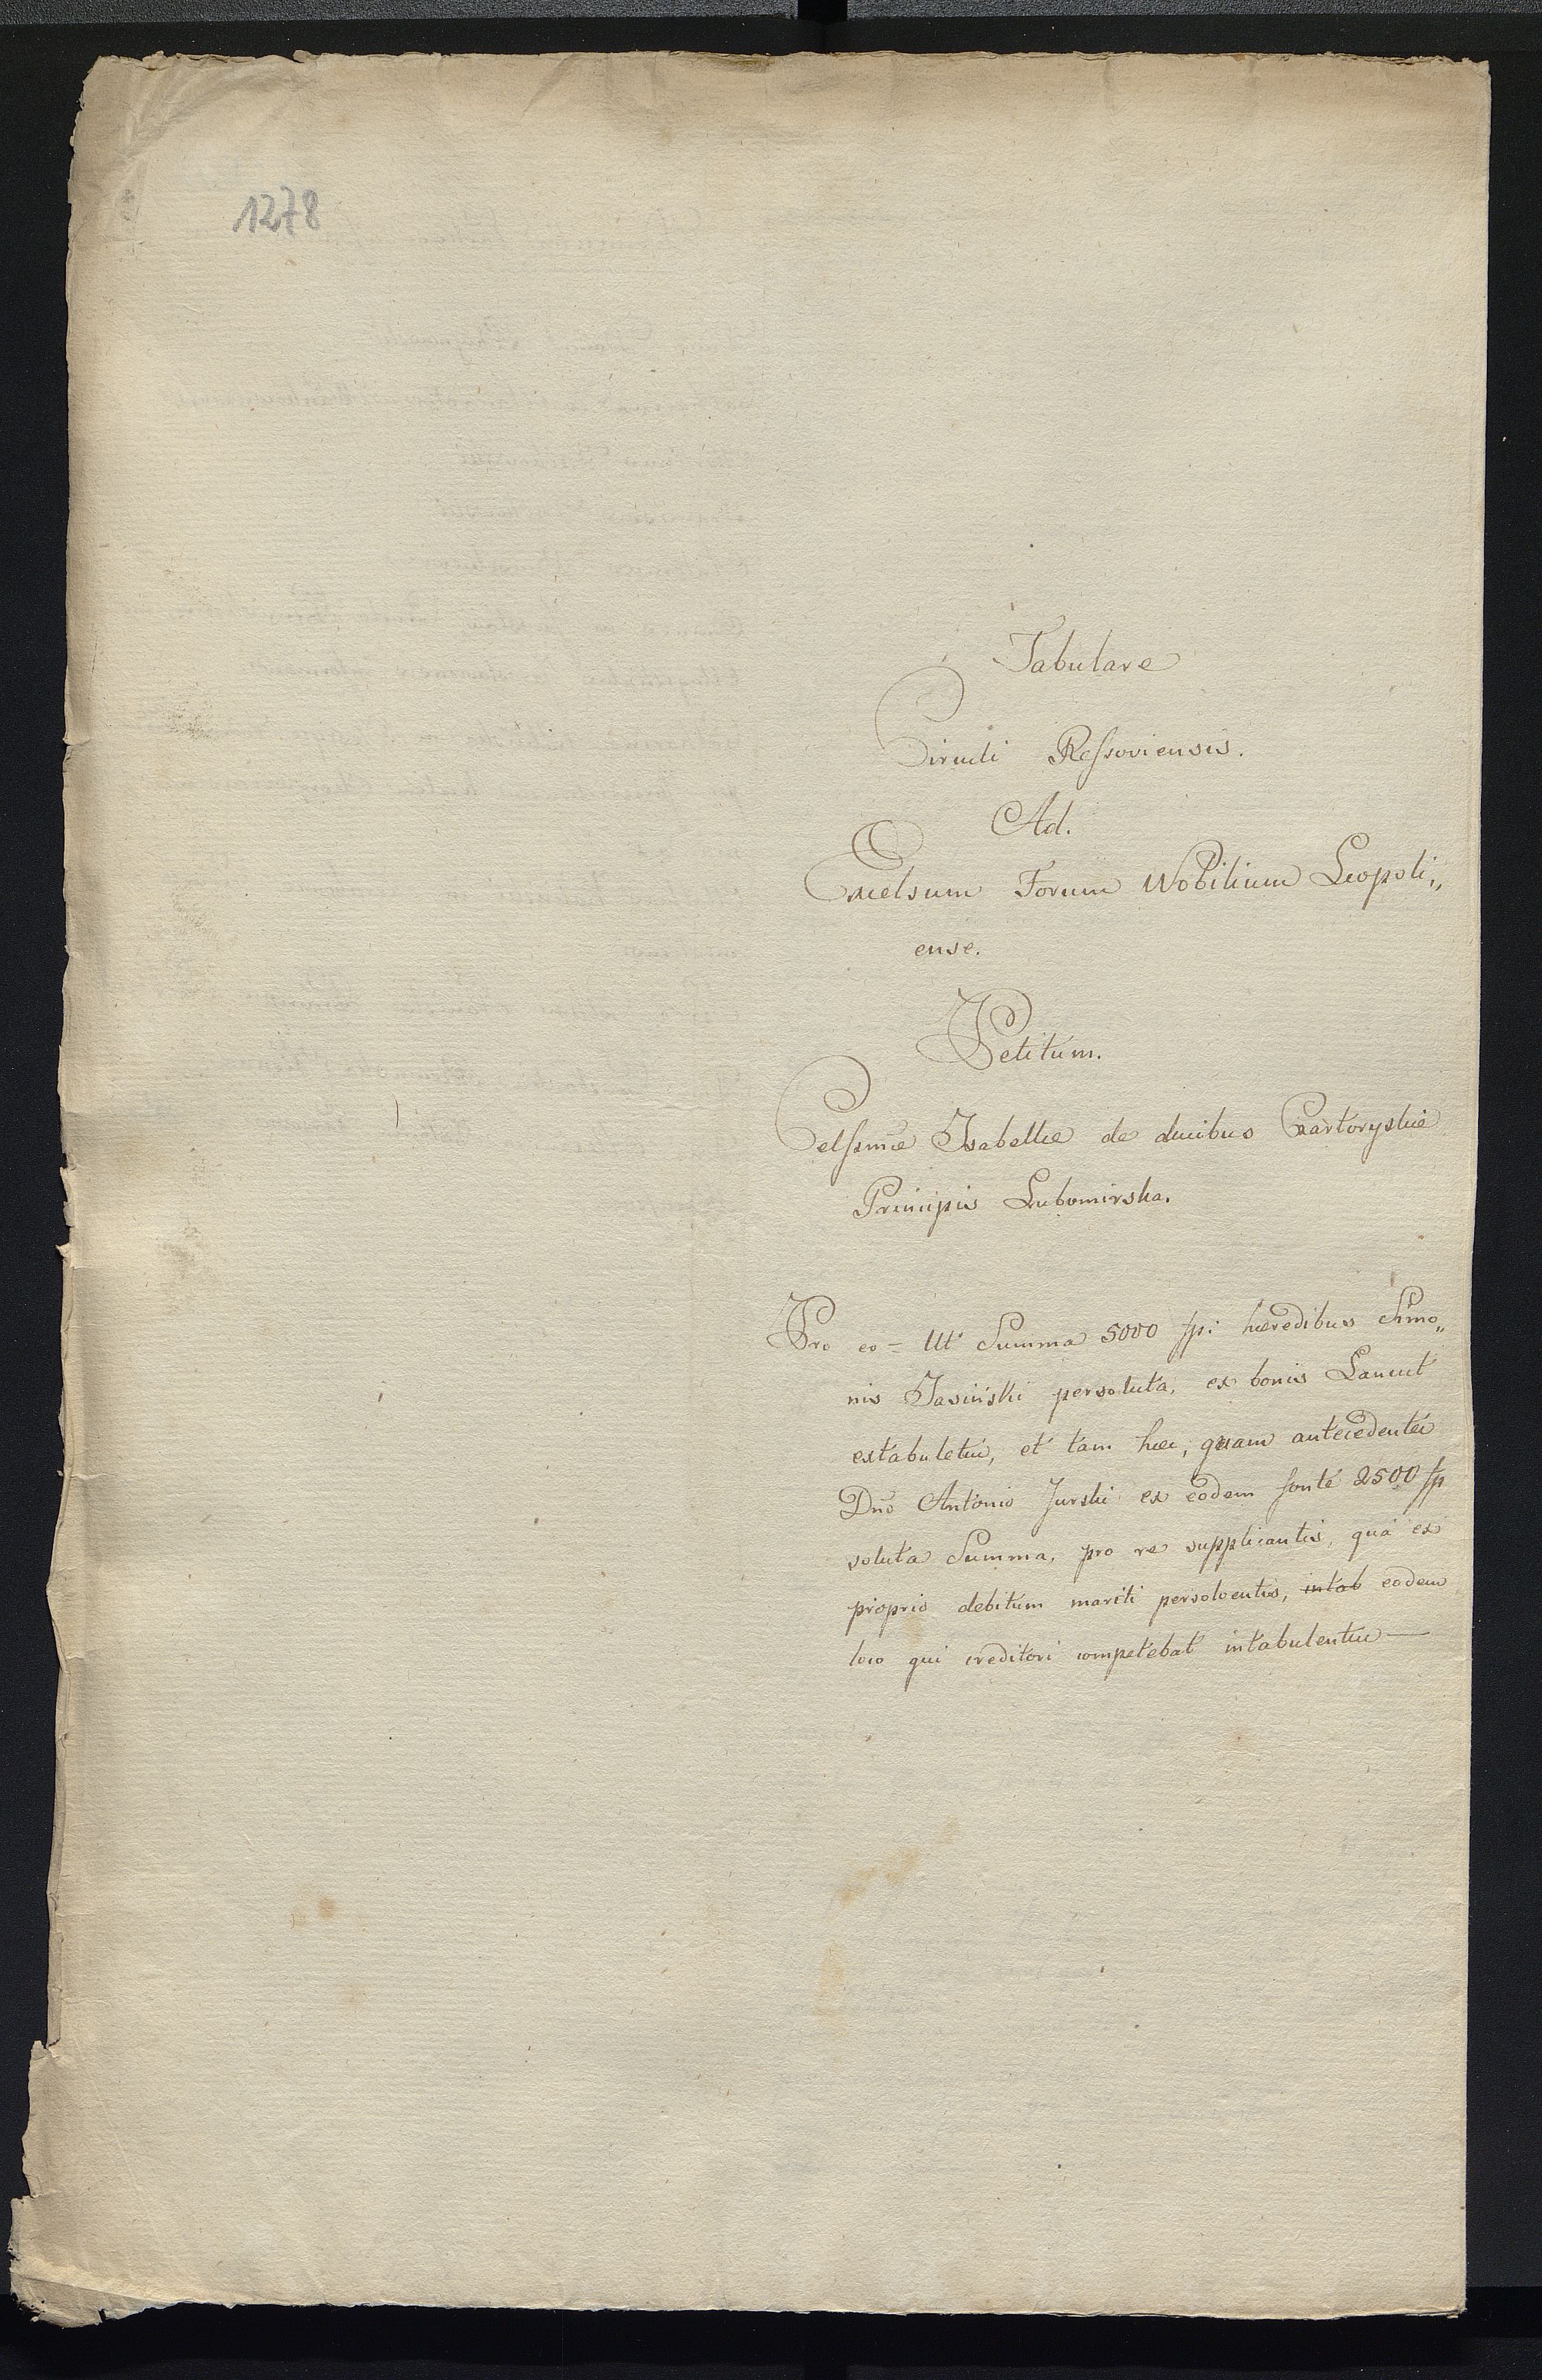 1278
Tabulare
Circuli Ressoviensis.
Ad.
Excelsum Forum Nobilium Leopoli„
ense.
Petitum.
Celssmæ Isabellæ de ducibus Czartoryskie
Principis Lubomirska.
Pro eo = Ut Summa 5000 fp: hæredibus Simo„
nis Jasiński persoluta, ex bonis Lancut
extabuletur, et tam hæc, quam antecedenter
Dno Antonio Jurski ex eodem fonte 2500 fp
soluta Summa, pro re supplicantis, qua ex
proprio debitum mariti persolventis, intab eodem
loco qui creditori competebat intabulentur —